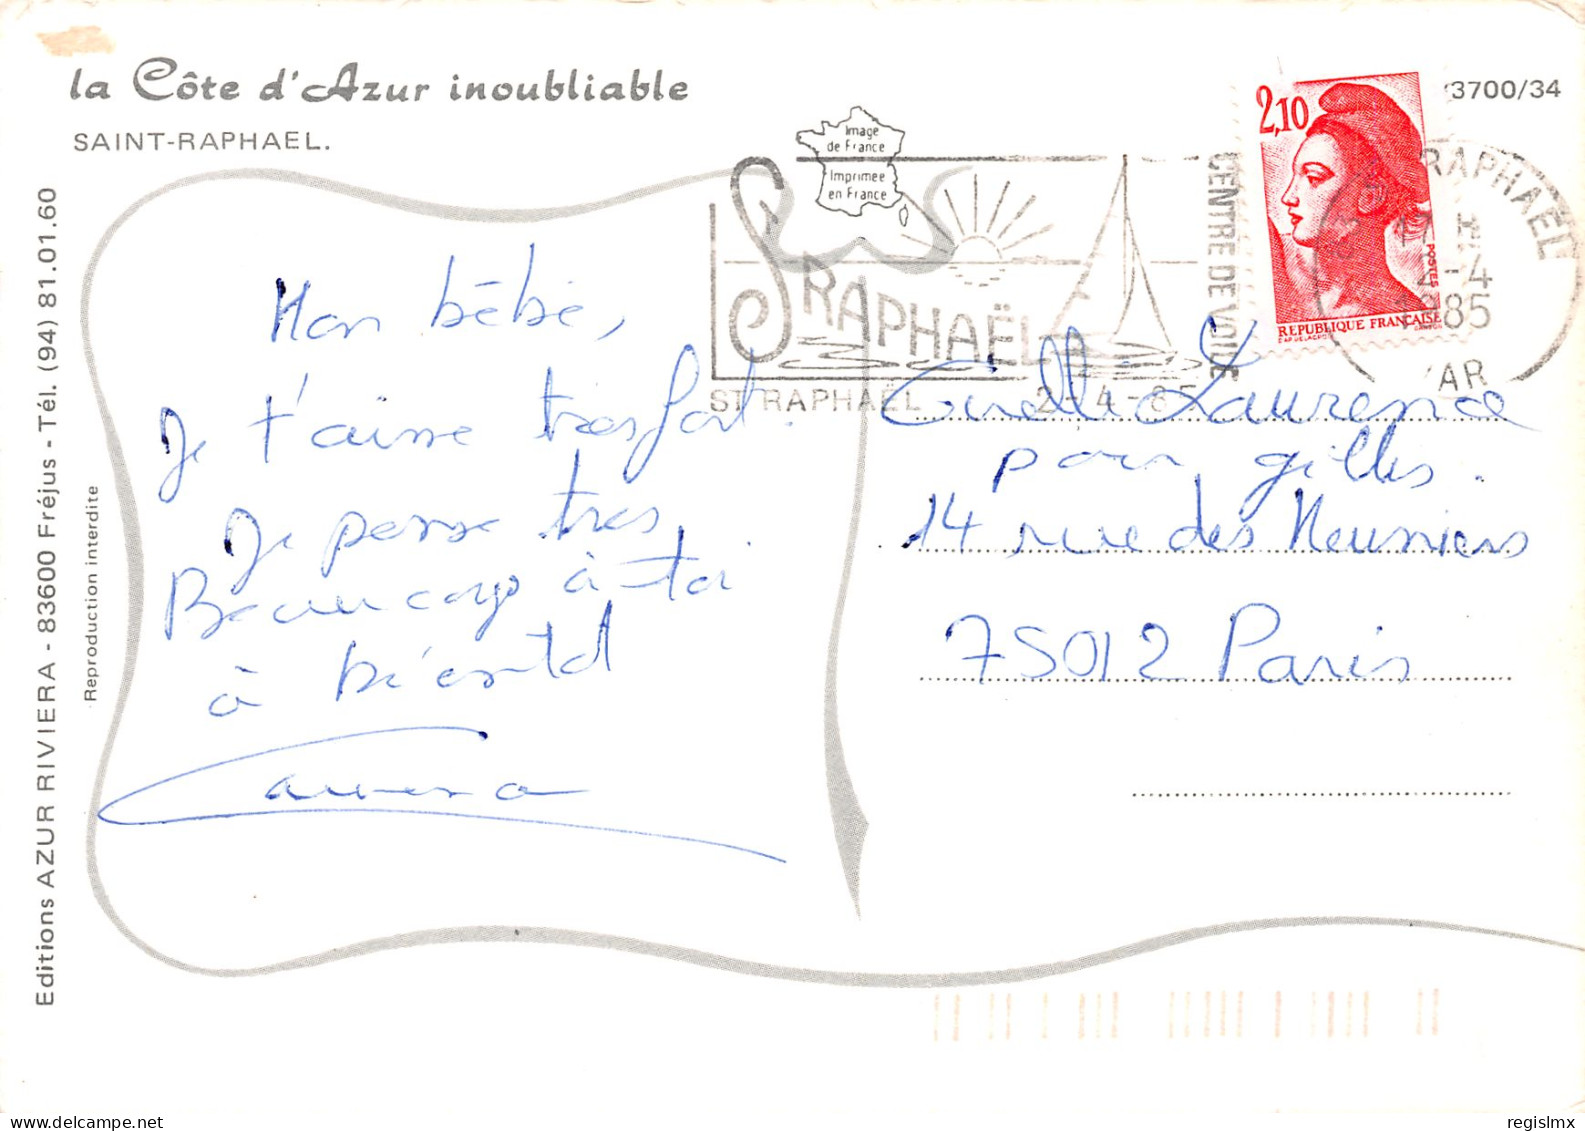 la Côte d'Azur inoubliable
SAINT-RAPHAEL.
3700/34
Image
de France
Imprimée
en France
2,10
POSTES
REPUBLIQUE FRANÇAISE
ST RAPHAËL
CENTRE DE VOILE
ST RAPHAËL 2-4-85
RAPHAËL
17 H
2-4
1985
VAR
Mon bébé,
Je t'aime tres fort.
Je pense tres
Beaucoup à toi
à bientot
Laurence
Laurence
pour gilles.
14 rue des Meuniers
75012 Paris
Editions AZUR RIVIERA - 83600 Fréjus - Tél. (94) 81.01.60
Reproduction interdite
regislmx